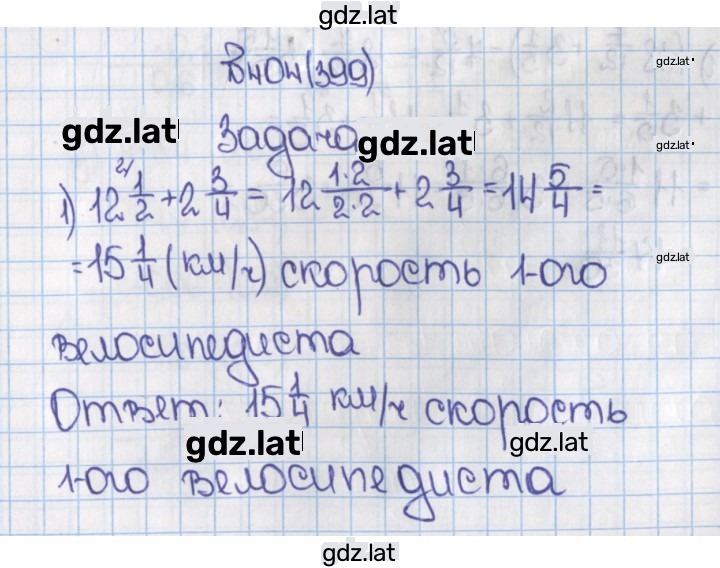 gdz.lat
В404(399)
gdz.lat
gdz.lat
Задача
gdz.lat
gdz.lat
1) 12 2/ 1/2 + 2 3/4 = 12 1·2/2·2 + 2 3/4 = 14 5/4 =
= 15 1/4 (км/ч) скорость 1-ого
gdz.lat
велосипедиста
Ответ: 15 1/4 км/ч скорость
gdz.lat
gdz.lat
1-ого велосипедиста
gdz.lat